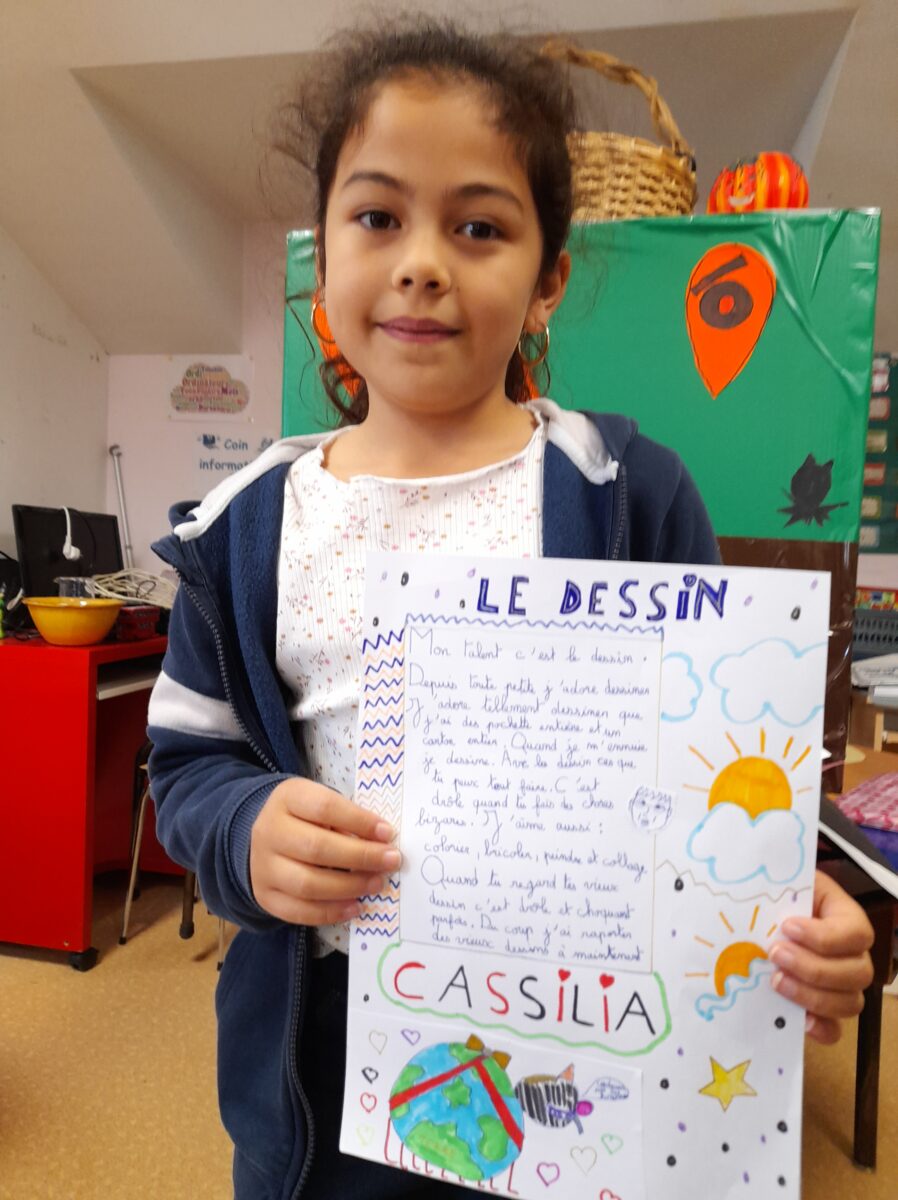 Coin
informat
10
LE DESSIN
Mon talent c'est le dessin.
Depuis toute petite j'adore dessiner
J'adore tellement dessiner que
j'ai des pochette entière et un
carton entier. Quand je m'ennuie
je dessine. Avec les dessin ces que
tu peux tout faire. C'est
drôle quand tu fais des choses
bizares. J'aime aussi :
colorier, bricoler, peindre et collage
Quand tu regard tes vieux
dessin c'est drôle et choquant
parfois. Du coup j'ai raporter
des vieux dessins à maintenant
CASSILIA